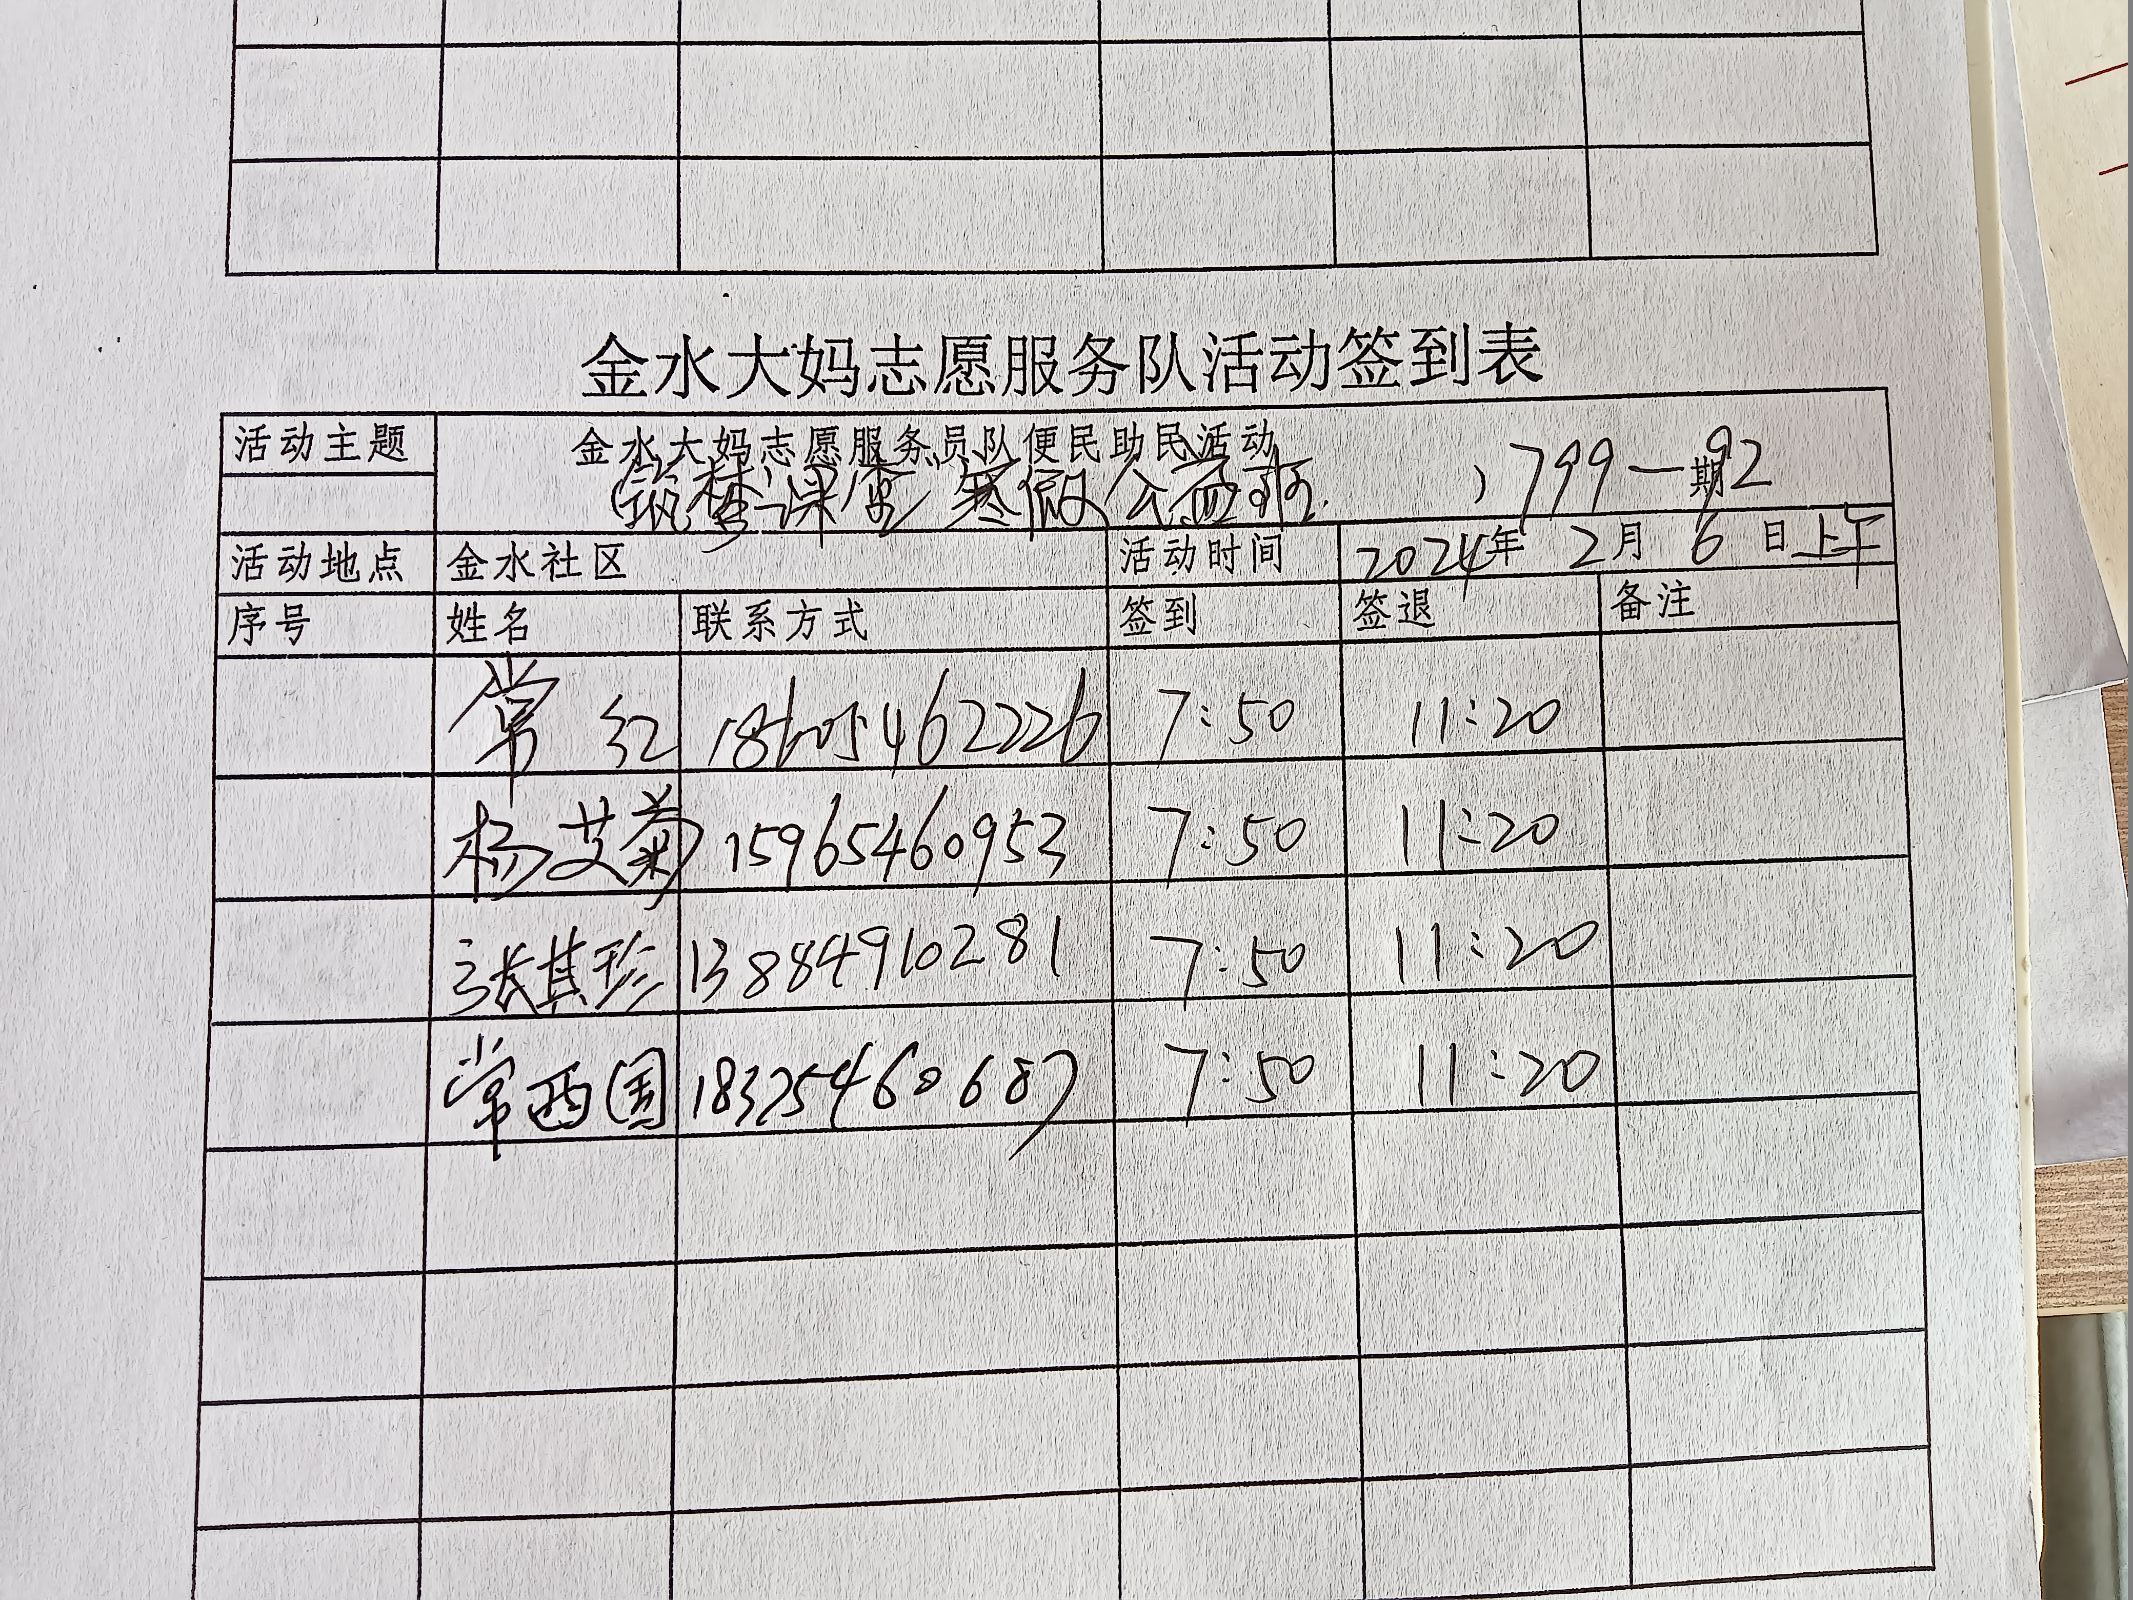 金水大妈志愿服务队活动签到表
活动主题 金水大妈志愿服务员队便民助民活动 1799-92 期
筑梦课堂寒假公益班
活动地点 金水社区 活动时间 2024年 2月 6日 上午
序号 姓名 联系方式 签到 签退 备注
常红 18605462226 7:50 11:20
杨艾菊 15965460953 7:50 11:20
张其珍 13884910281 7:50 11:20
常西国 18325460687 7:50 11:20